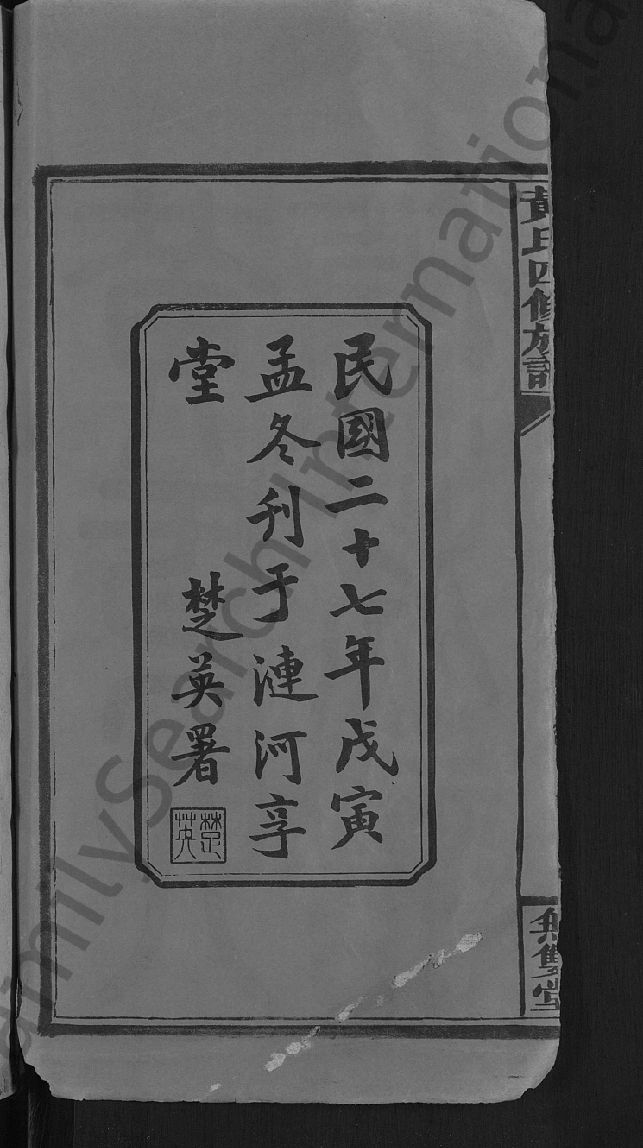 黃氏四修族譜
無雙堂
民國二十七年戊寅
孟冬刊于漣河享
堂
楚英署
楚英
FamilySearch International